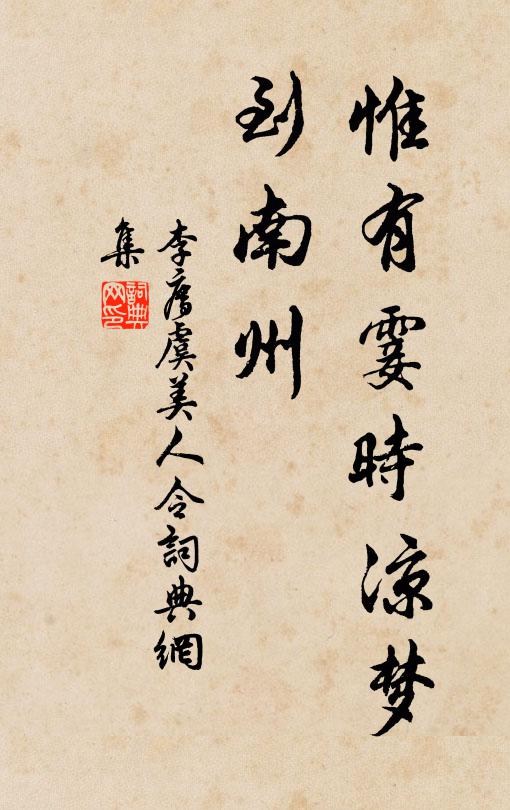 惟有霎時涼梦
到南州
李廌虞美人令詞典網
集
詞典
网印